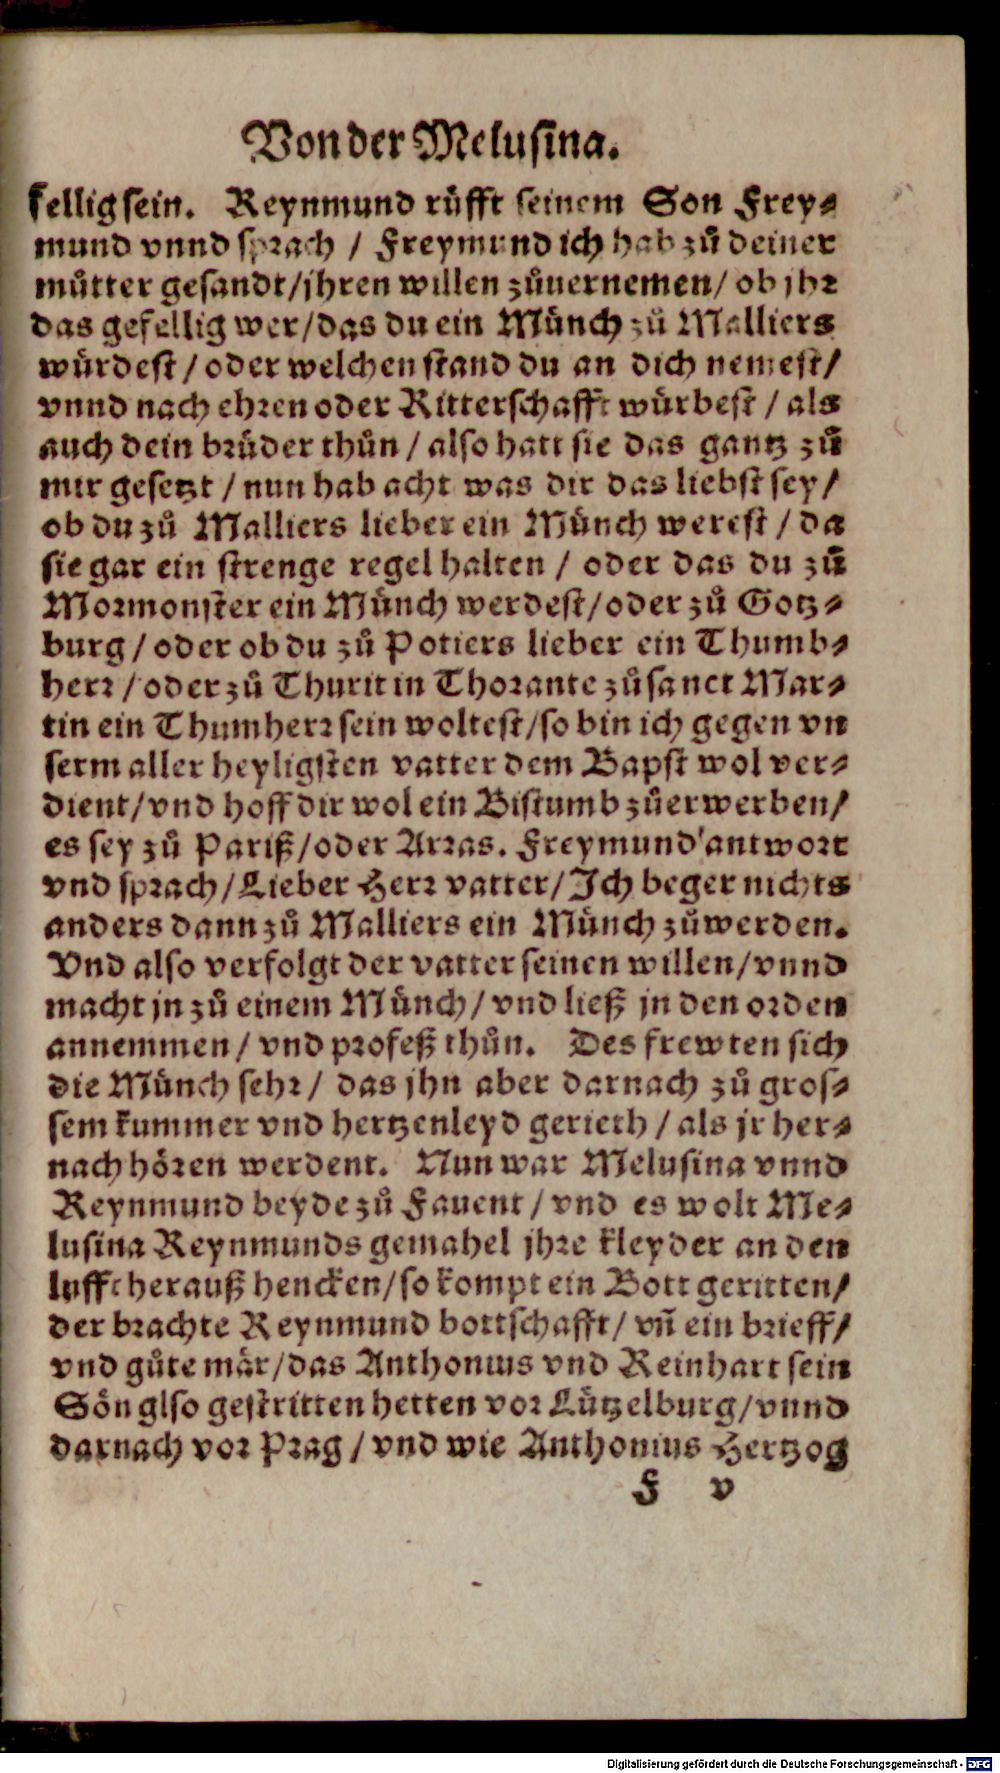 Von der Melusina.
fellig sein. Reynmund růfft seinem Son Frey⸗
mund vnnd sprach / Freymund ich hab zů deiner
můtter gesandt/jhren willen zůuernemen/ ob jhr
das gefellig wer/das du ein Münch zů Malliers
würdest / oder welchen stand du an dich nemest/
vnnd nach ehren oder Ritterschafft würbest / als
auch dein brůder thůn / also hatt sie das gantz zů
mir gesetzt / nun hab acht was dir das liebst sey/
ob du zů Malliers lieber ein Münch werest / da
sie gar ein strenge regel halten / oder das du zů
Mormonster ein Münch werdest/oder zů Gotz⸗
burg / oder ob du zů Potiers lieber ein Thumb⸗
herr / oder zů Thurit in Thorante zů sanct Mar⸗
tin ein Thumherr sein woltest/so bin ich gegen vn
serm aller heyligsten vatter dem Bapst wol ver⸗
dient/vnd hoff dir wol ein Bistumb zůerwerben/
es sey zů Pariß/oder Arras. Freymund antwort
vnd sprach/Lieber Herr vatter/Ich beger nichts
anders dann zů Malliers ein Münch zůwerden.
Vnd also verfolgt der vatter seinen willen/vnnd
macht jn zů einem Münch/ vnd ließ jn den orden
annemmen/ vnd profeß thůn. Des frewten sich
die Münch sehr/ das jhn aber darnach zů gros⸗
sem kummer vnd hertzenleyd gerieth / als jr her⸗
nach hören werdent. Nun war Melusina vnnd
Reynmund beyde zů Fauent / vnd es wolt Me⸗
lusina Reynmunds gemahel jhre kleyder an den
lufft herauß hencken/so kompt ein Bott geritten/
der brachte Reynmund bottschafft/ vñ ein brieff/
vnd gůte mär/das Anthonius vnd Reinhart sein
Sön glso gestritten hetten vor Lützelburg/vnnd
darnach vor Prag / vnd wie Anthonius Hertzog
F v
Digitalisierung gefördert durch die Deutsche Forschungsgemeinschaft - DFG